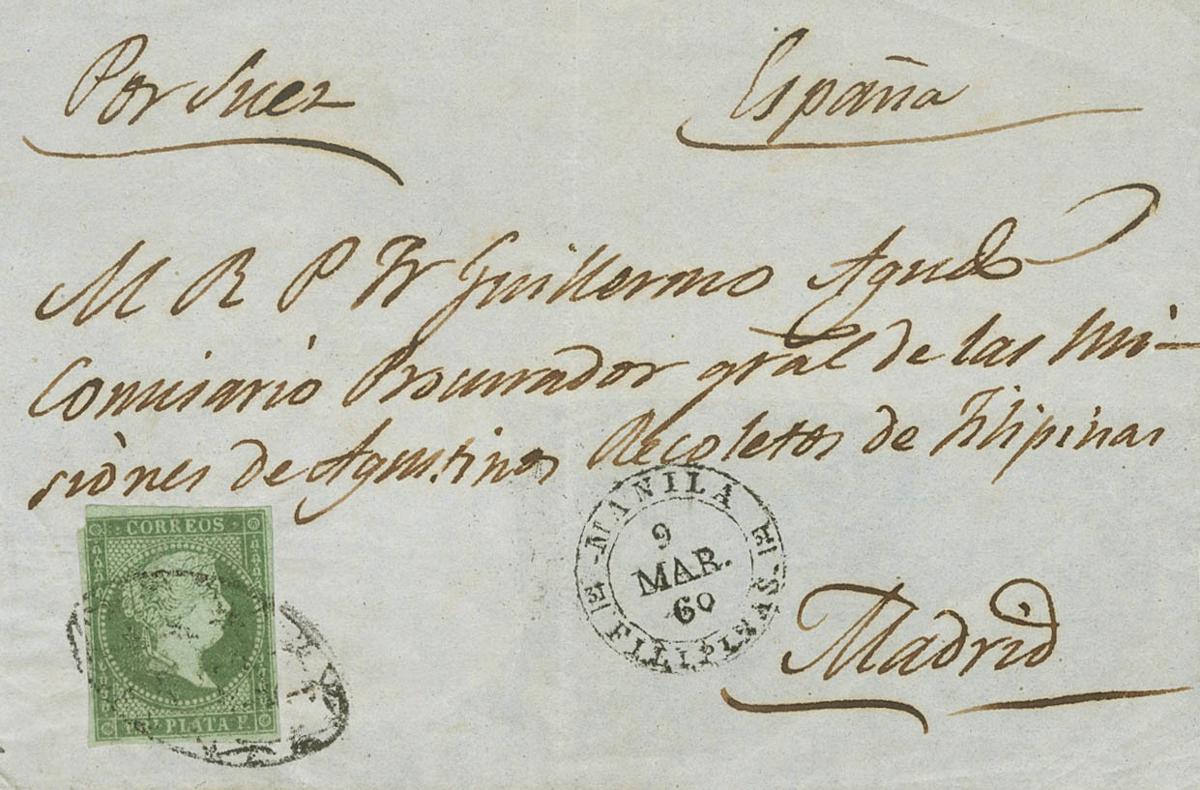 Por Suez
España
M R P Fr Guillermo Agudo
Comisario Procurador gral de las Mi-
siones de Agustinos Recoletos de Filipinas
CORREOS
PLATA F.
MANILA
9
MAR.
60
FILIPINAS.
Madrid